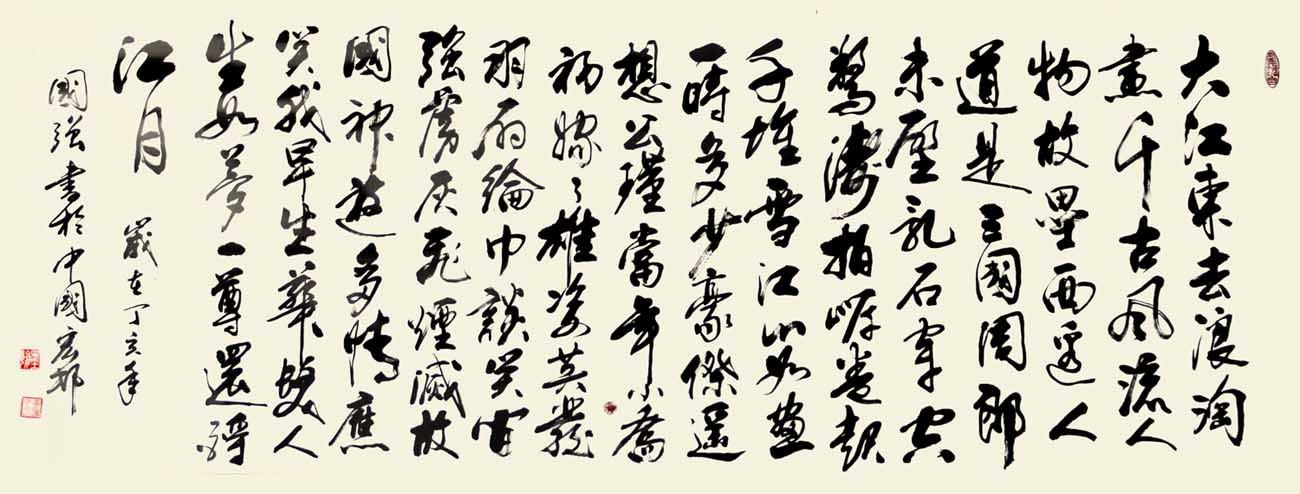 大江東去浪淘
盡千古風流人
物故壘西邊人
道是三國周郎
赤壁乱石穿空
驚濤拍岸卷起
千堆雪江山如畫
一時多少豪傑遥
想公瑾當年小喬
初嫁了雄姿英發
羽扇綸巾談笑间
强虜灰飛煙滅故
國神遊多情應
笑我早生華髮人
生如夢一尊還酹
江月 歲在丁亥年
國强書於中國